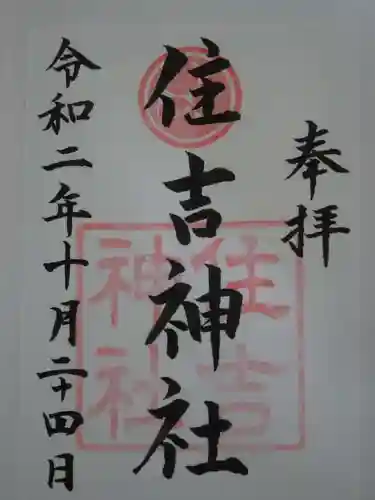 奉拝
住吉神社
住吉神社
令和二年十月二十四日